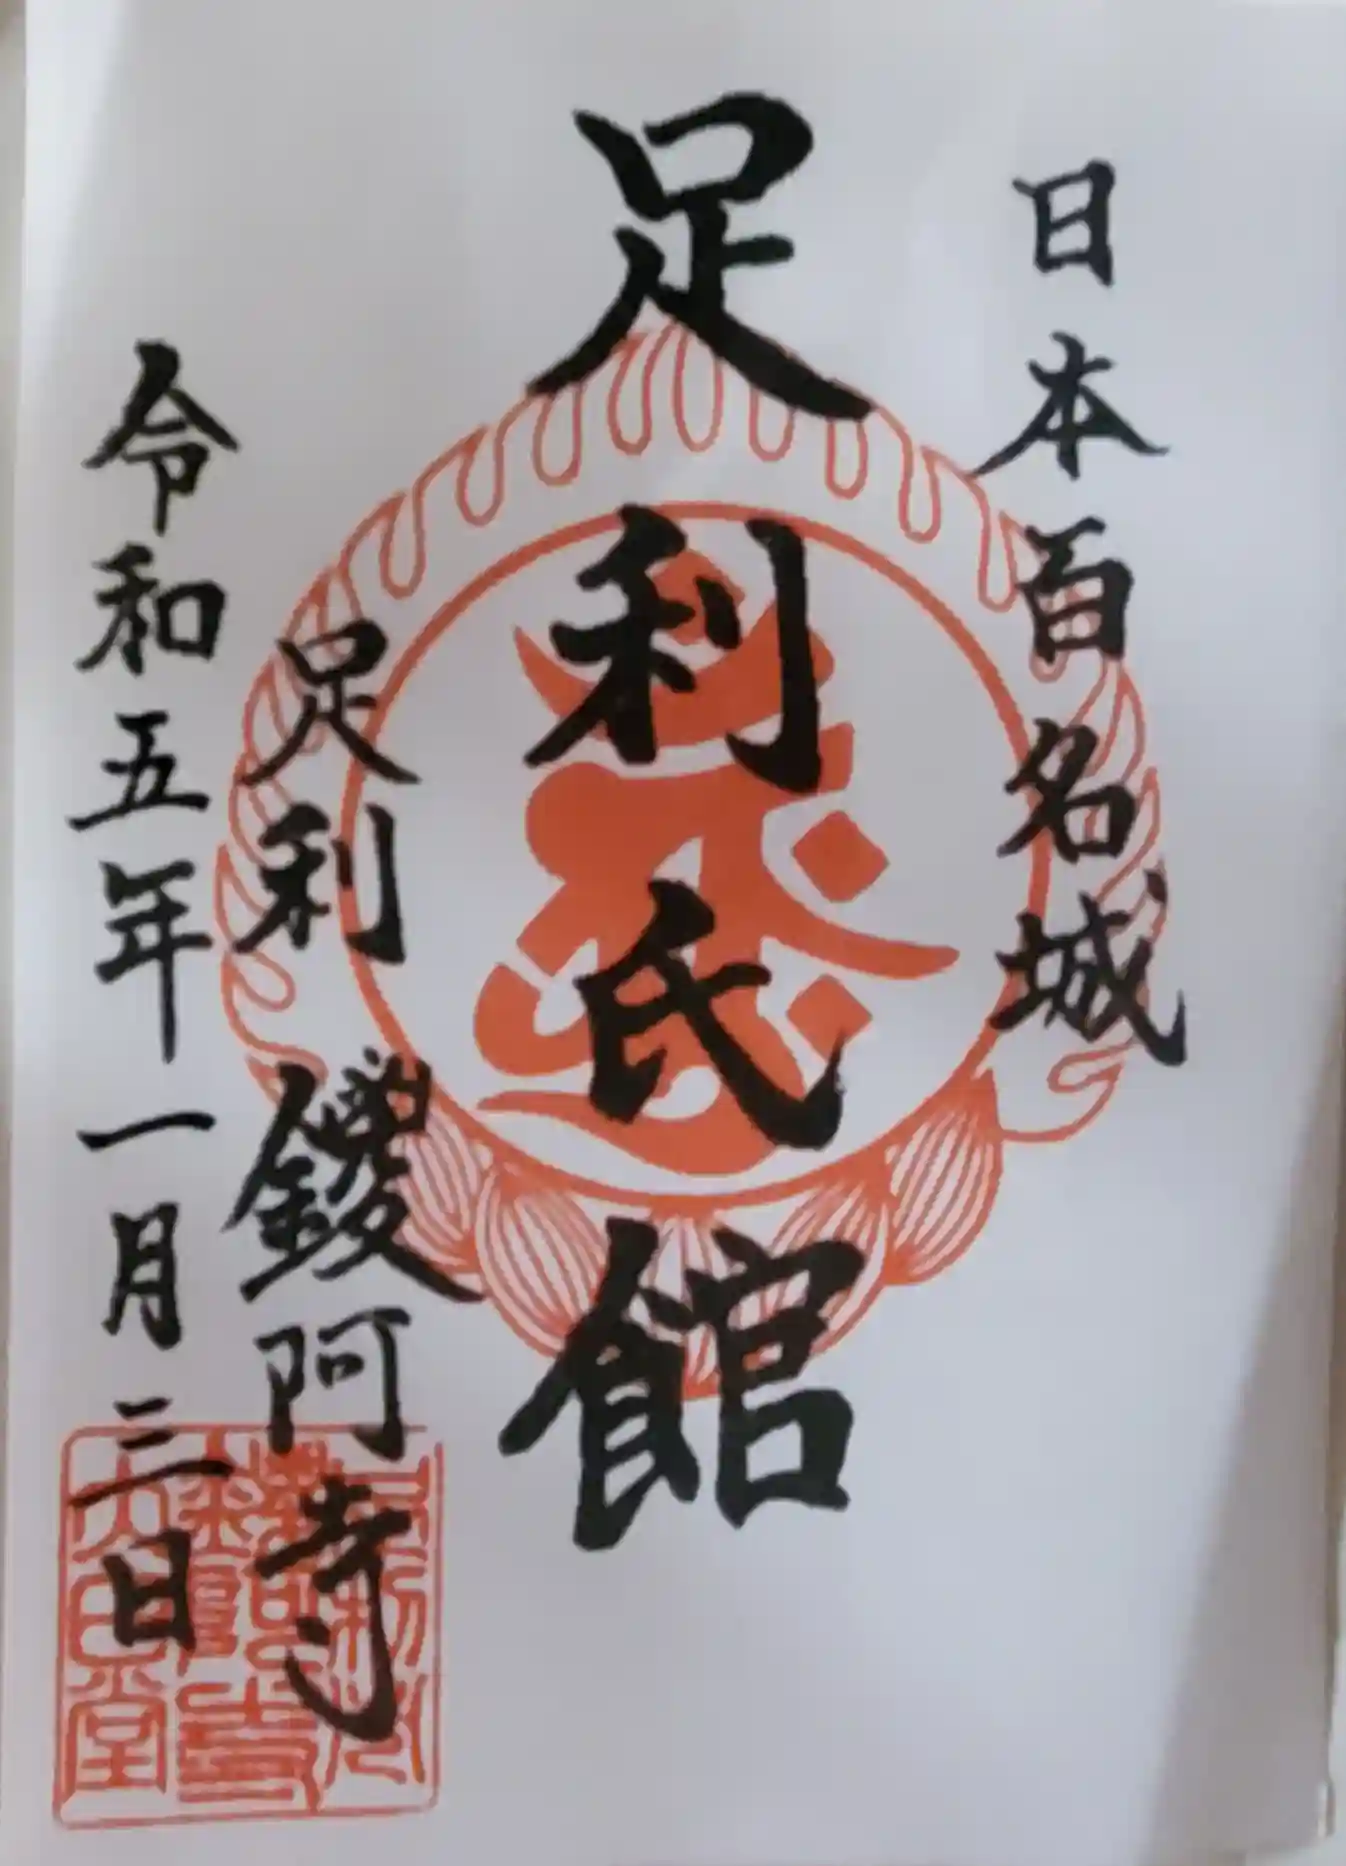 日本百名城
足利氏館
足利 鑁阿寺
令和五年一月三日